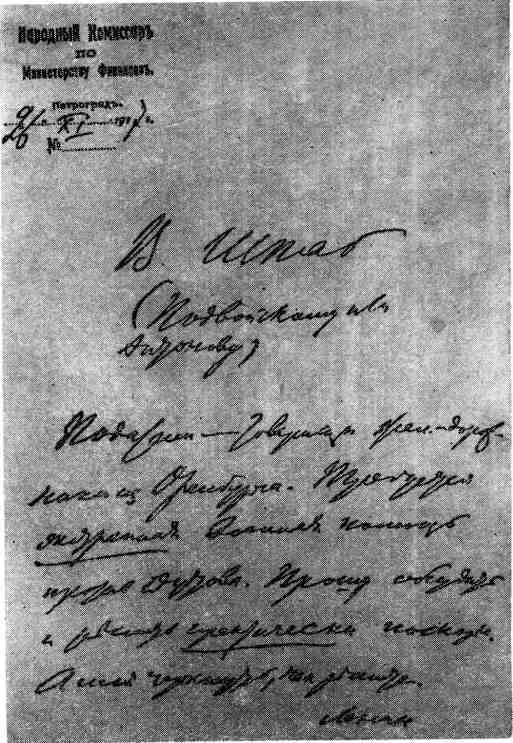 Народный Комиссаръ
по
Министерству Финансовъ.
Петроградъ.
26/XI 1917 г.
№
В Штаб
(Подвойскому или
Антонову)
Податели — товарищи жел.-дорож-
ники из Оренбурга. Требуется
экстренная военная помощь
против Дутова. Прошу обсудить
и решить практически поскорее.
А мне черкнуть, как решите.
Ленин